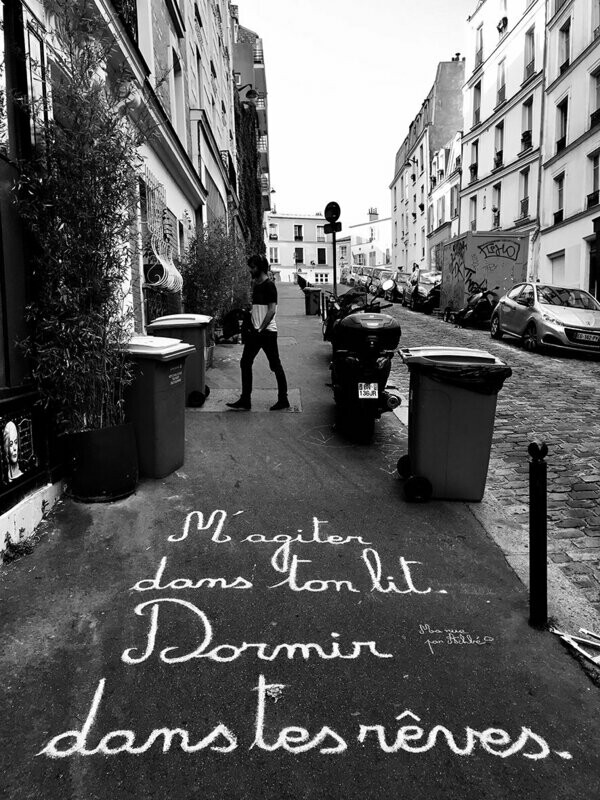 M'agiter
dans ton lit.
Dormir
dans tes rêves.
Ma rue
par
136JR